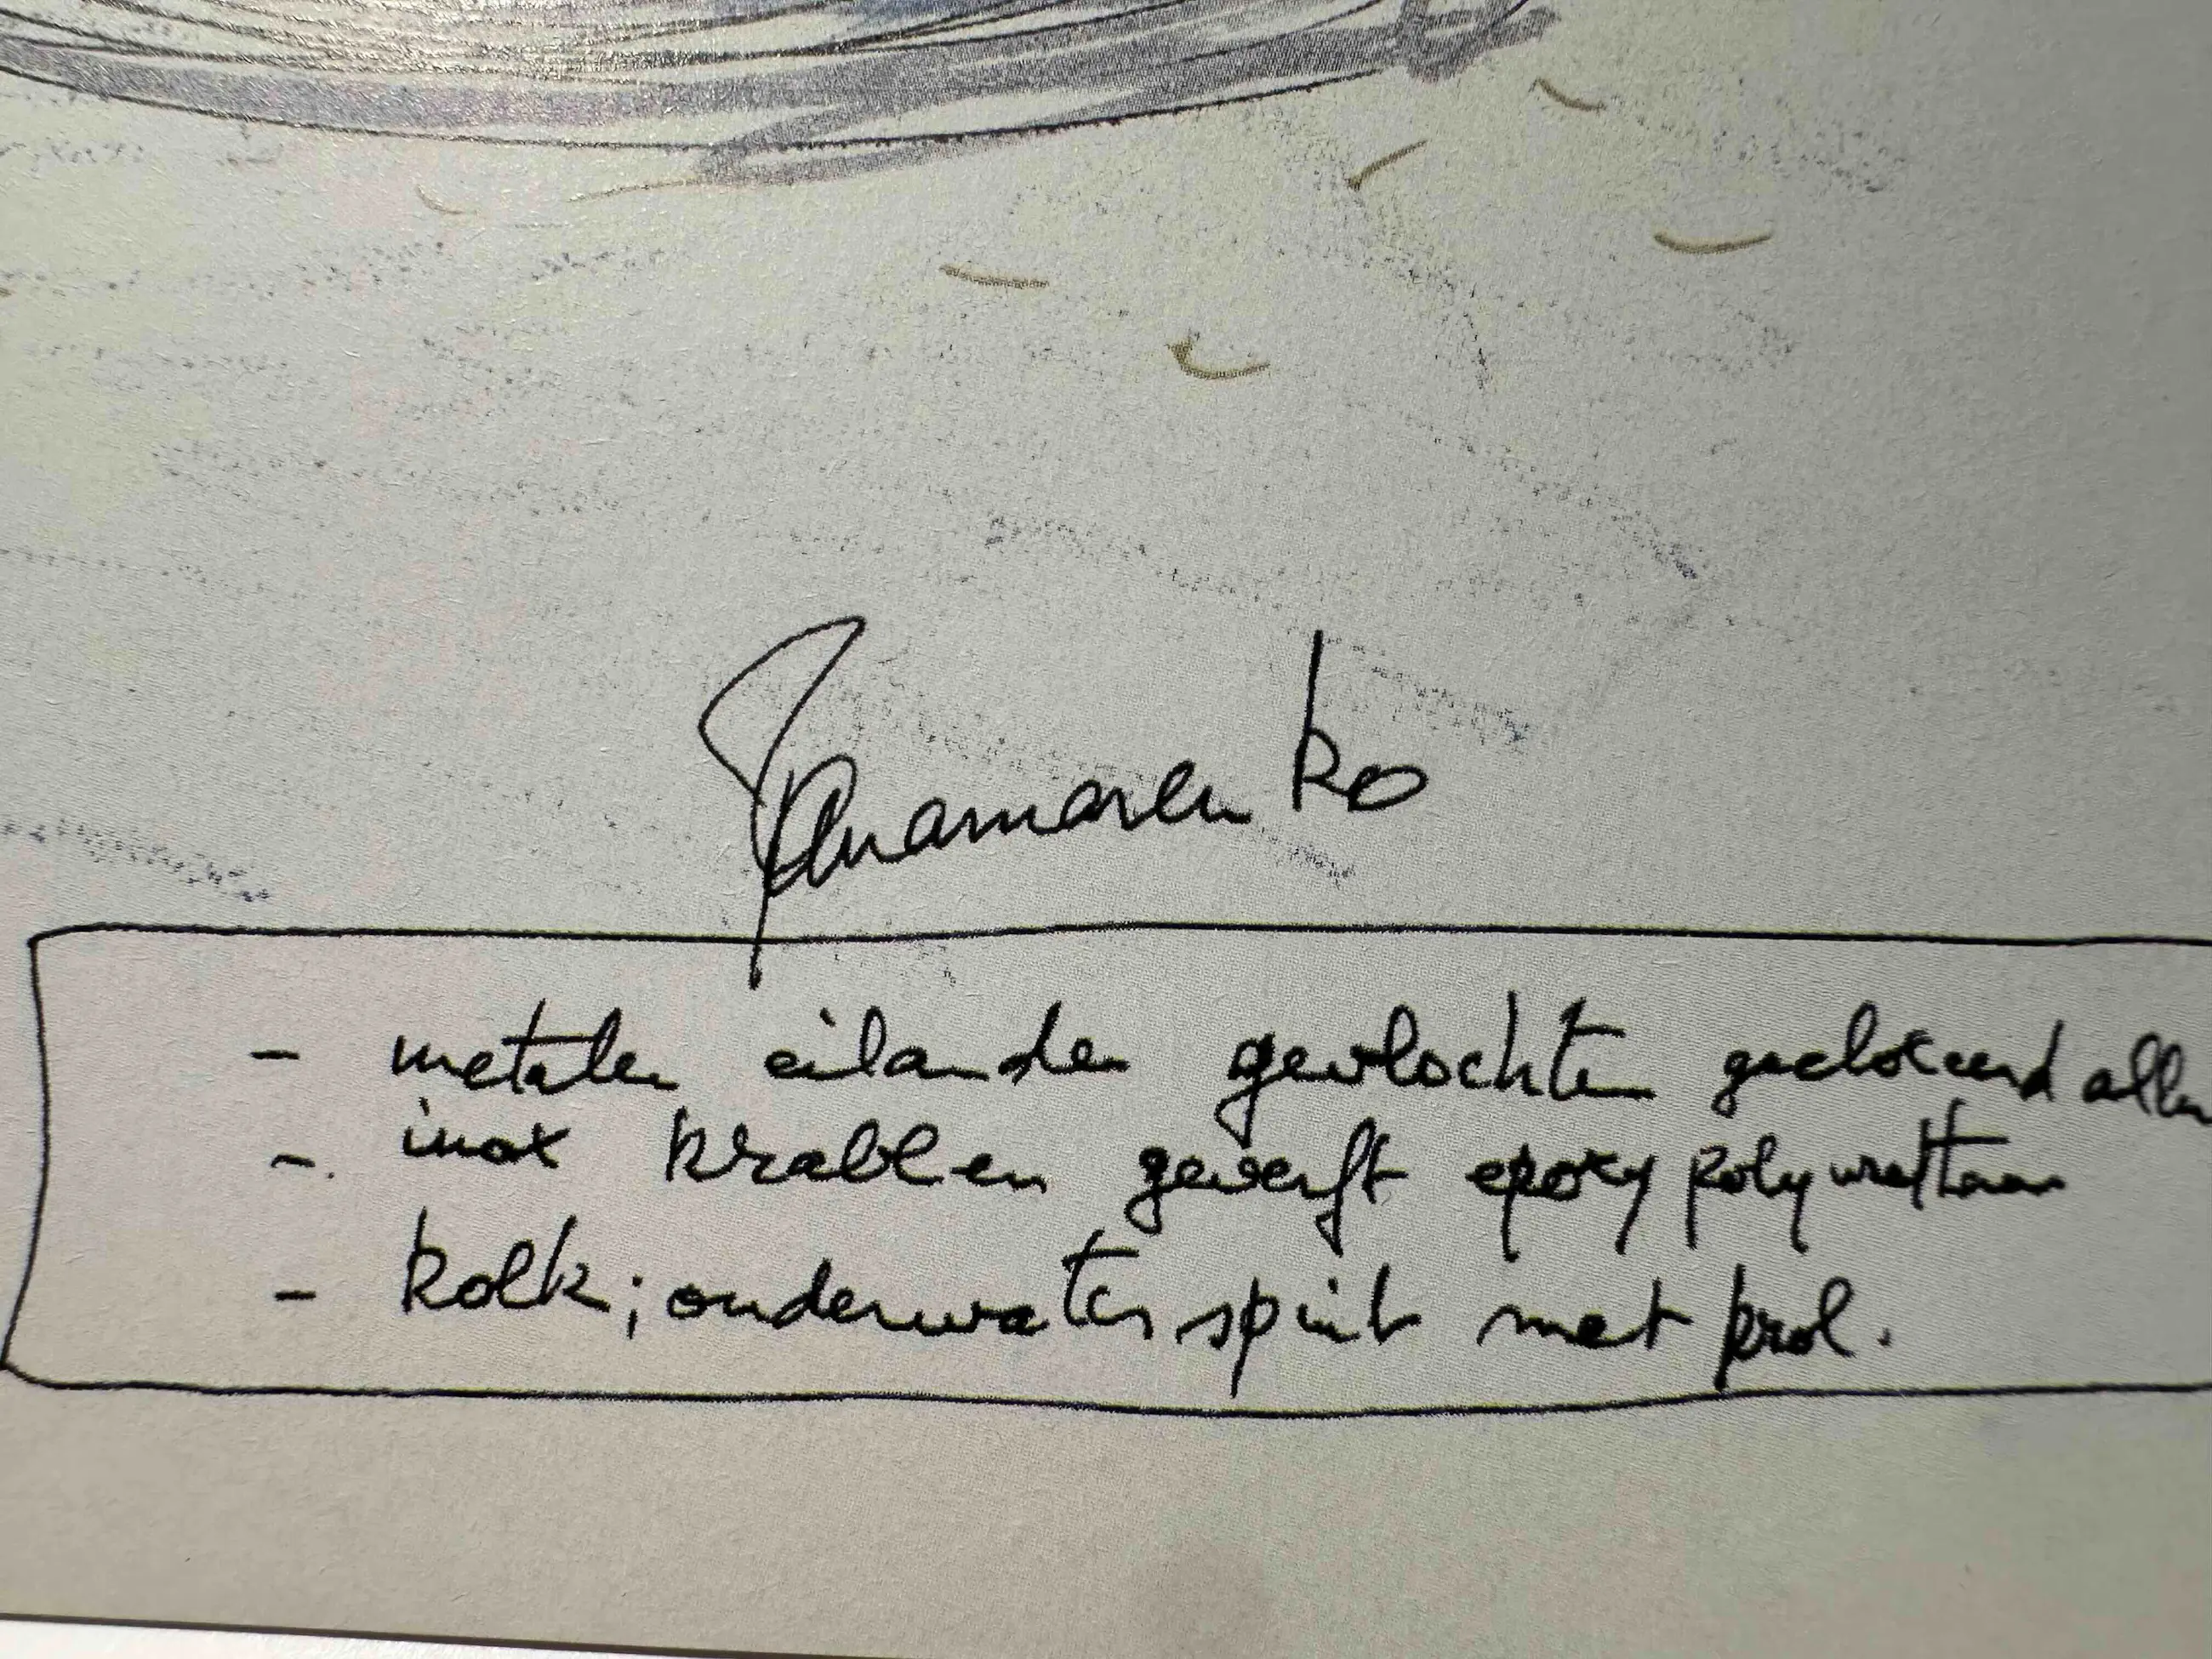 Panamarenko
- metalen eilanden gevlochten geclokeerd allen
- inox krabben geverft epoxy polyurethaan
- kolk; onderwater spuit met prol.